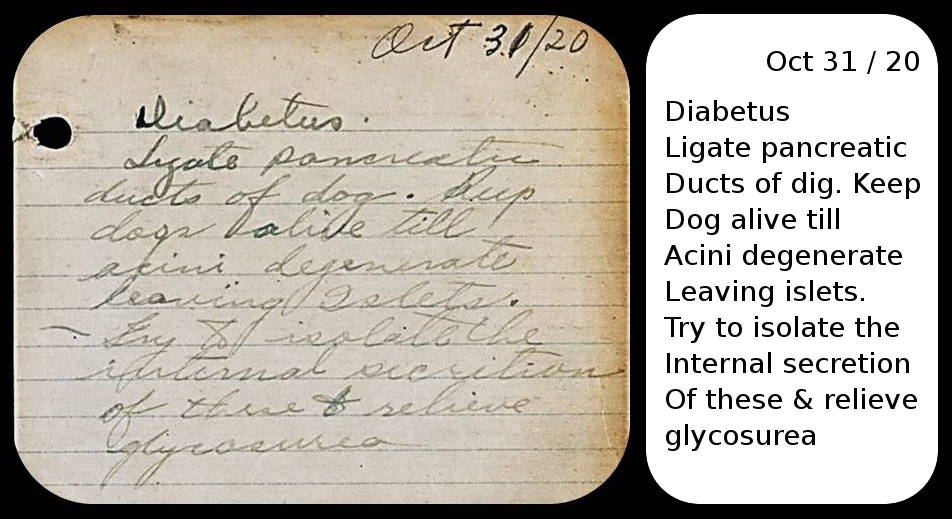 Oct 31/20
Diabetus.
Ligate pancreatic
ducts of dog. Keep
dogs alive till
acini degenerate
leaving Islets.
– Try to isolate the
internal secretion
of these & relieve
glycosurea
Oct 31 / 20
Diabetus
Ligate pancreatic
Ducts of dig. Keep
Dog alive till
Acini degenerate
Leaving islets.
Try to isolate the
Internal secretion
Of these & relieve
glycosurea